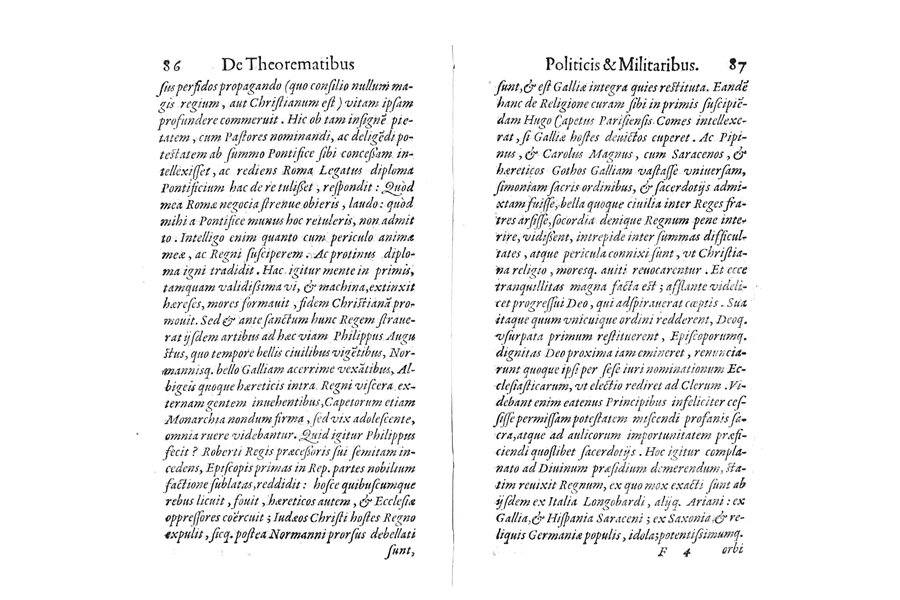 86 De Theorematibus
sus perfidos propagando (quo consilio nullum ma-
gis regium, aut Christianum est) vitam ipsam
profundere commeruit. Hic ob tam insignē pie-
tatem, cum Pastores nominandi, ac deligēdi po-
testatem ab summo Pontifice sibi concessam in-
tellexisset, ac rediens Roma Legatus diploma
Pontificium hac de re tulisset, respondit: Quod
mea Romæ negocia strenue obieris, laudo: quòd
mihi a Pontifice munus hoc retuleris, non admit
to. Intelligo enim quanto cum periculo animæ
meæ, ac Regni susciperem. Ac protinus diplo-
ma igni tradidit. Hac igitur mente in primis,
tamquam validissima vi, & machina, extinxit
hæreses, mores formauit, fidem Christianā pro-
mouit. Sed & ante sanctum hunc Regem straue-
rat ijsdem artibus ad hæc viam Philippus Augu
stus, quo tempore bellis ciuilibus vigētibus, Nor-
mannisq. bello Galliam acerrime vexātibus, Al-
bigeis quoque hæreticis intra Regni viscera ex-
ternam gentem inuehentibus, Capetorum etiam
Monarchia nondum firma, sed vix adolescente,
omnia ruere videbantur. Quid igitur Philippus
fecit? Roberti Regis præcessoris sui semitam in-
cedens, Episcopis primas in Rep. partes nobilium
factione sublatas, reddidit: hosce quibuscumque
rebus licuit, fouit, hæreticos autem, & Ecclesiæ
oppressores coërcuit; Iudæos Christi hostes Regno
expulit, sicq. postea Normanni prorsus debellati
sunt,
Politicis & Militaribus. 87
sunt, & est Galliæ integra quies restituta. Eandē
hanc de Religione curam sibi in primis suscipiē-
dam Hugo Capetus Parisiensis Comes intellexe-
rat, si Galliæ hostes deuictos cuperet. Ac Pipi-
nus, & Carolus Magnus, cum Saracenos, &
hæreticos Gothos Galliam vastasse vniuersam,
simoniam sacris ordinibus, & sacerdotijs admi-
xtam fuisse, bella quoque ciuilia inter Reges fra-
tres arsisse, socordia denique Regnum pene inte-
rire, vidissent, intrepide inter summas difficul-
tates, atque pericula connixi sunt, vt Christia-
na religio, moresq. auiti reuocarentur. Et ecce
tranquillitas magna facta est; afflante videli-
cet progressui Deo, qui adspirauerat cœptis. Sua
itaque quum vnicuique ordini redderent, Deoq.
vsurpata primum restituerent, Episcoporumq.
dignitas Deo proxima iam emineret, renuncia-
runt quoque ipsi per sese iuri nominationum Ec-
clesiasticarum, vt electio rediret ad Clerum. Vi-
debant enim eatenus Principibus infeliciter ces-
sisse permissam potestatem miscendi profanis sa-
cra, atque ad aulicorum importunitatem præfi-
ciendi quoslibet sacerdotijs. Hoc igitur compla-
nato ad Diuinum præsidium demerendum, sta-
tim reuixit Regnum, ex quo mox exacti sunt ab
ijsdem ex Italia Longobardi, alijq. Ariani: ex
Gallia, & Hispania Saraceni; ex Saxonia, & re-
liquis Germaniæ populis, idola; potentissimumq.
F 4 orbi